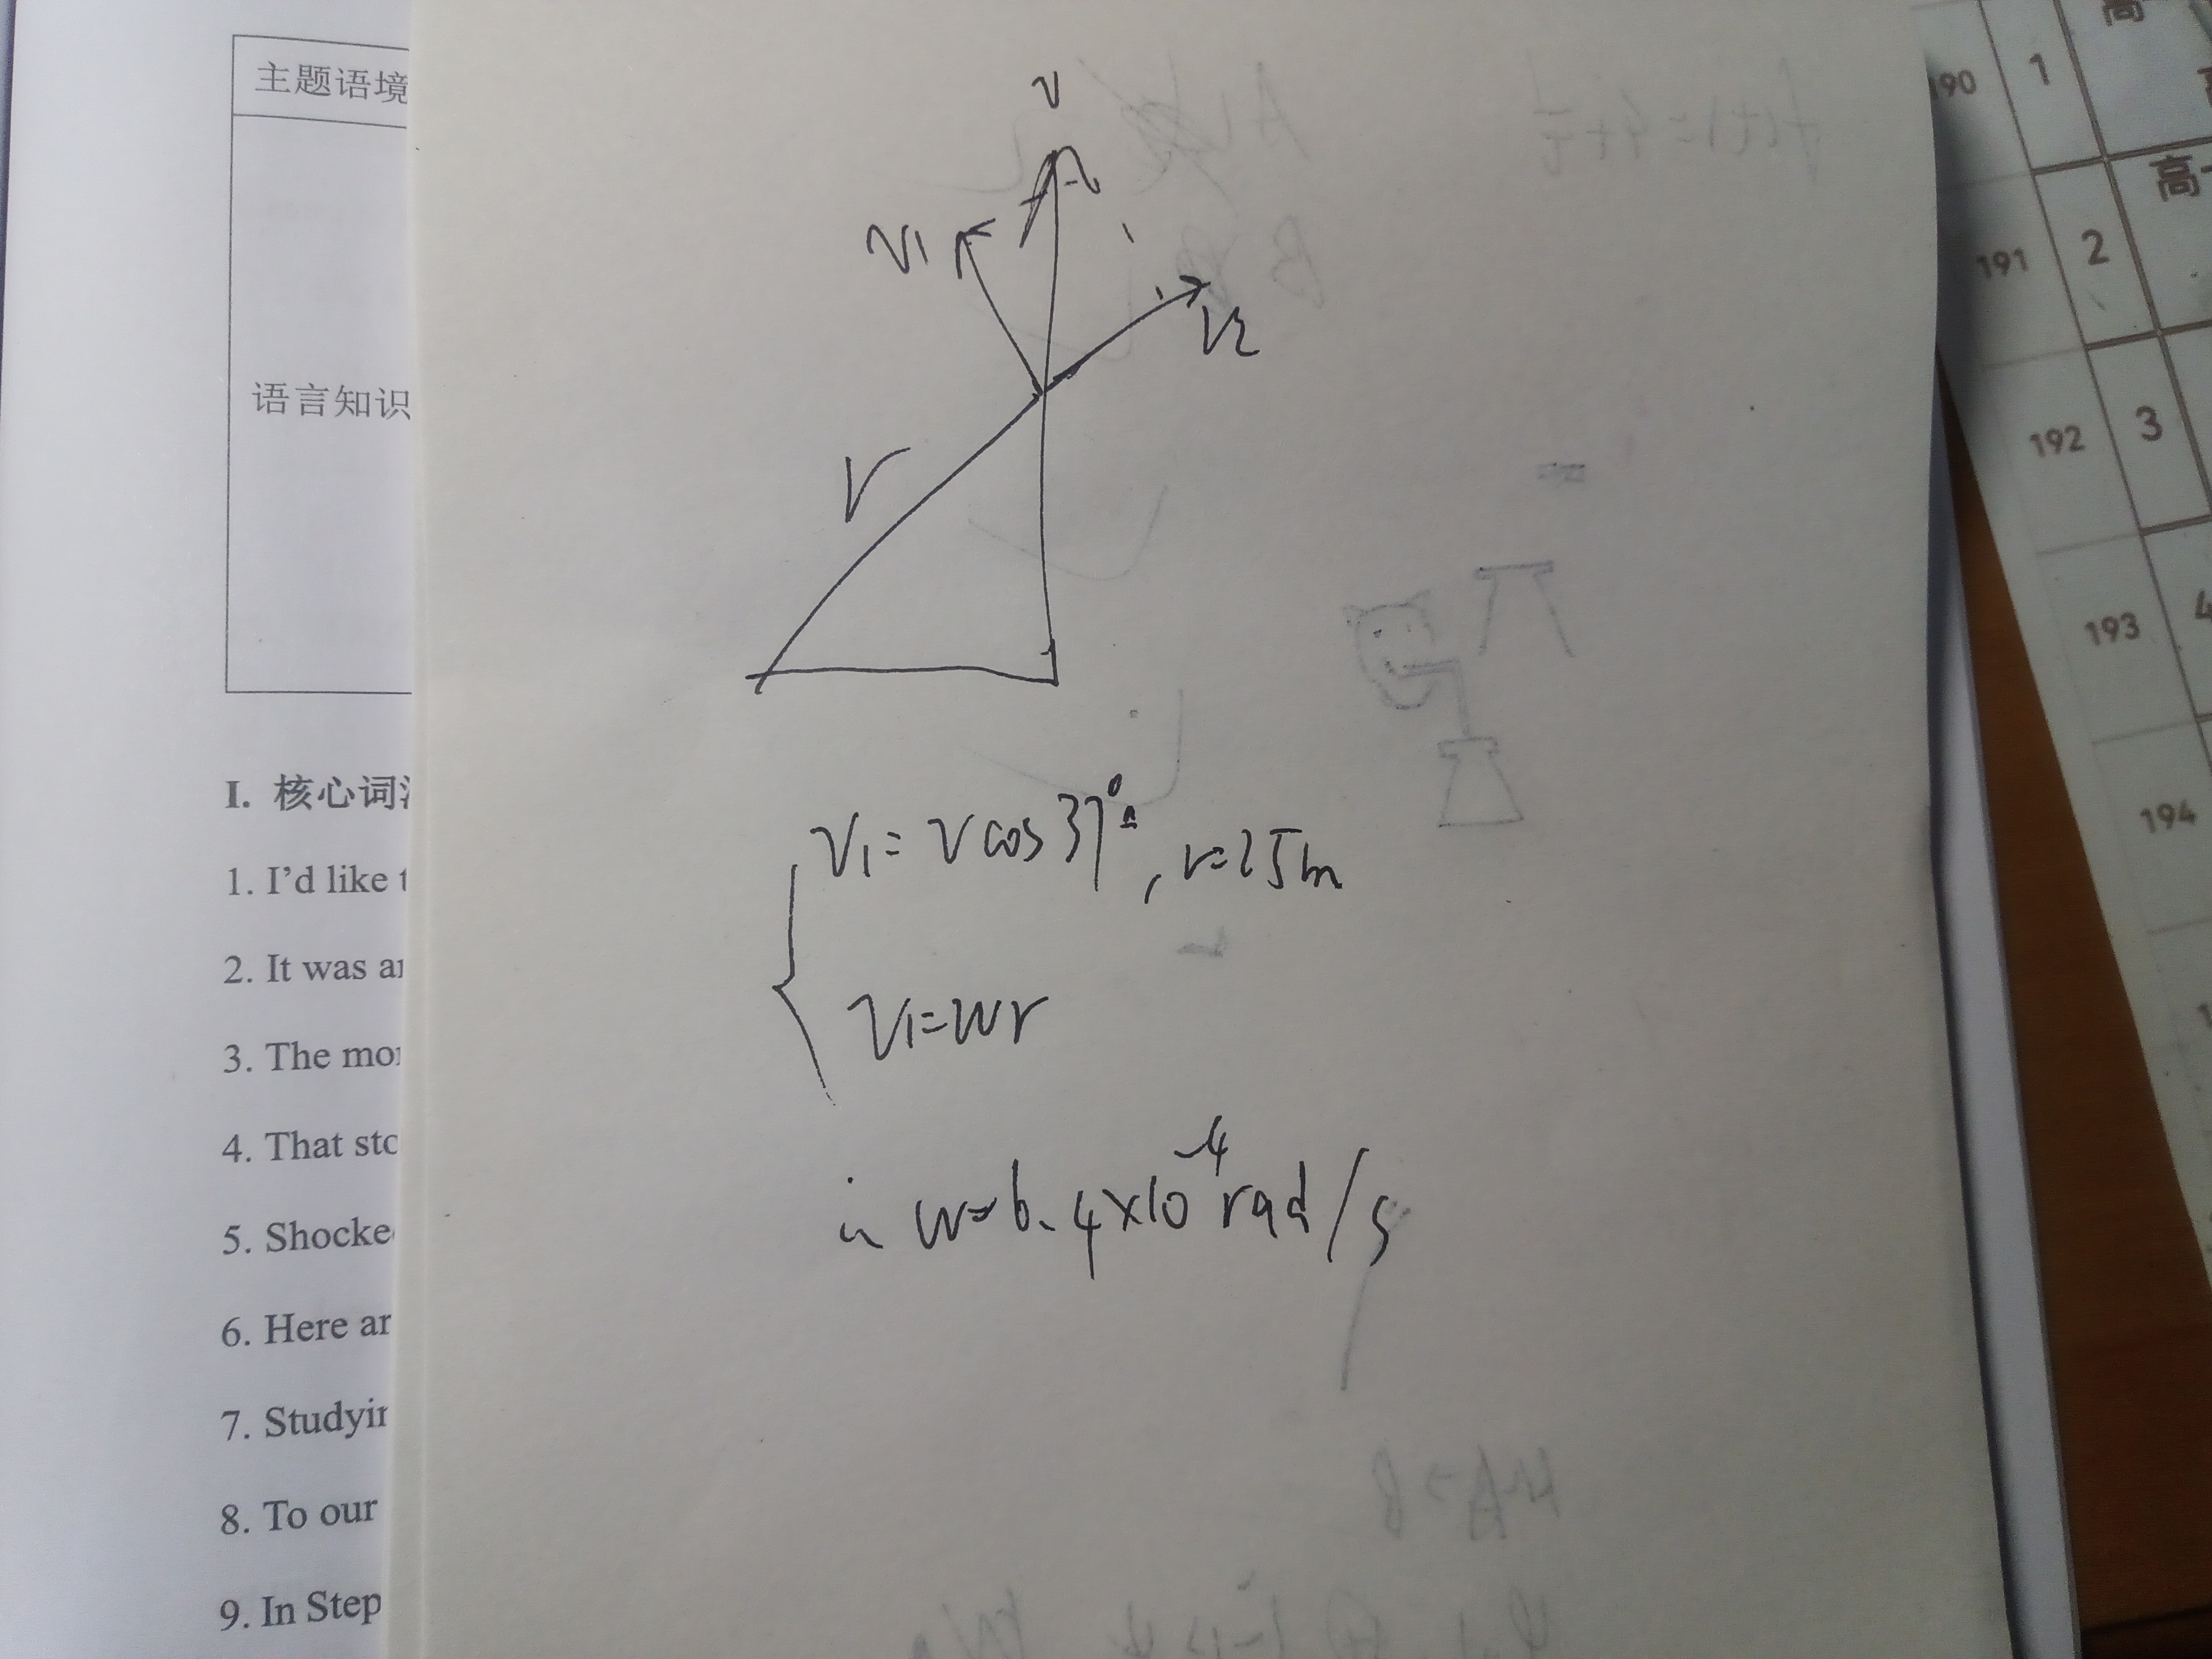 主题语境
语言知识
I. 核心词
1. I'd like t
2. It was ar
3. The mor
4. That sto
5. Shocke
6. Here ar
7. Studyin
8. To our
9. In Step
v
v1
v2
r
v1 = v cos 37°, r=25m
v1=wr
∴ w=6.4×10⁻⁴ rad/s
190 1 高
191 2 高一
192 3
193 4
194